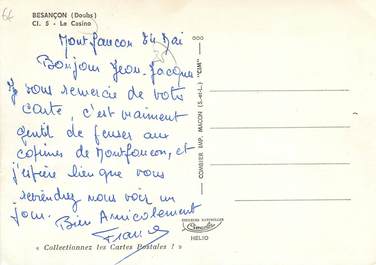 64
BESANÇON (Doubs)
Cl. 5 - Le Casino
Montfaucon 24 Mai
Bonjour Jean-Jacques
Je vous remercie de votre
carte, c'est vraiment
gentil de penser aux
copines de Montfaucon, et
j'espère bien que vous
reviendrez nous voir un
jour.
Bien Amicalement
France
« Collectionnez les Cartes Postales ! »
COMBIER IMP. MACON (S.-et-L.) "CIM"
Cimcolor
HELIO